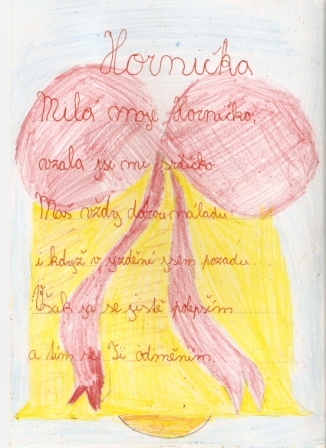 Hornička
Milá moje Horničko,
vzala jsi mi srdíčko
Máš vždy dobrou náladu
i když v ježdění jsem pozadu.
Však já se jistě polepším
a tím se Ti odměním.